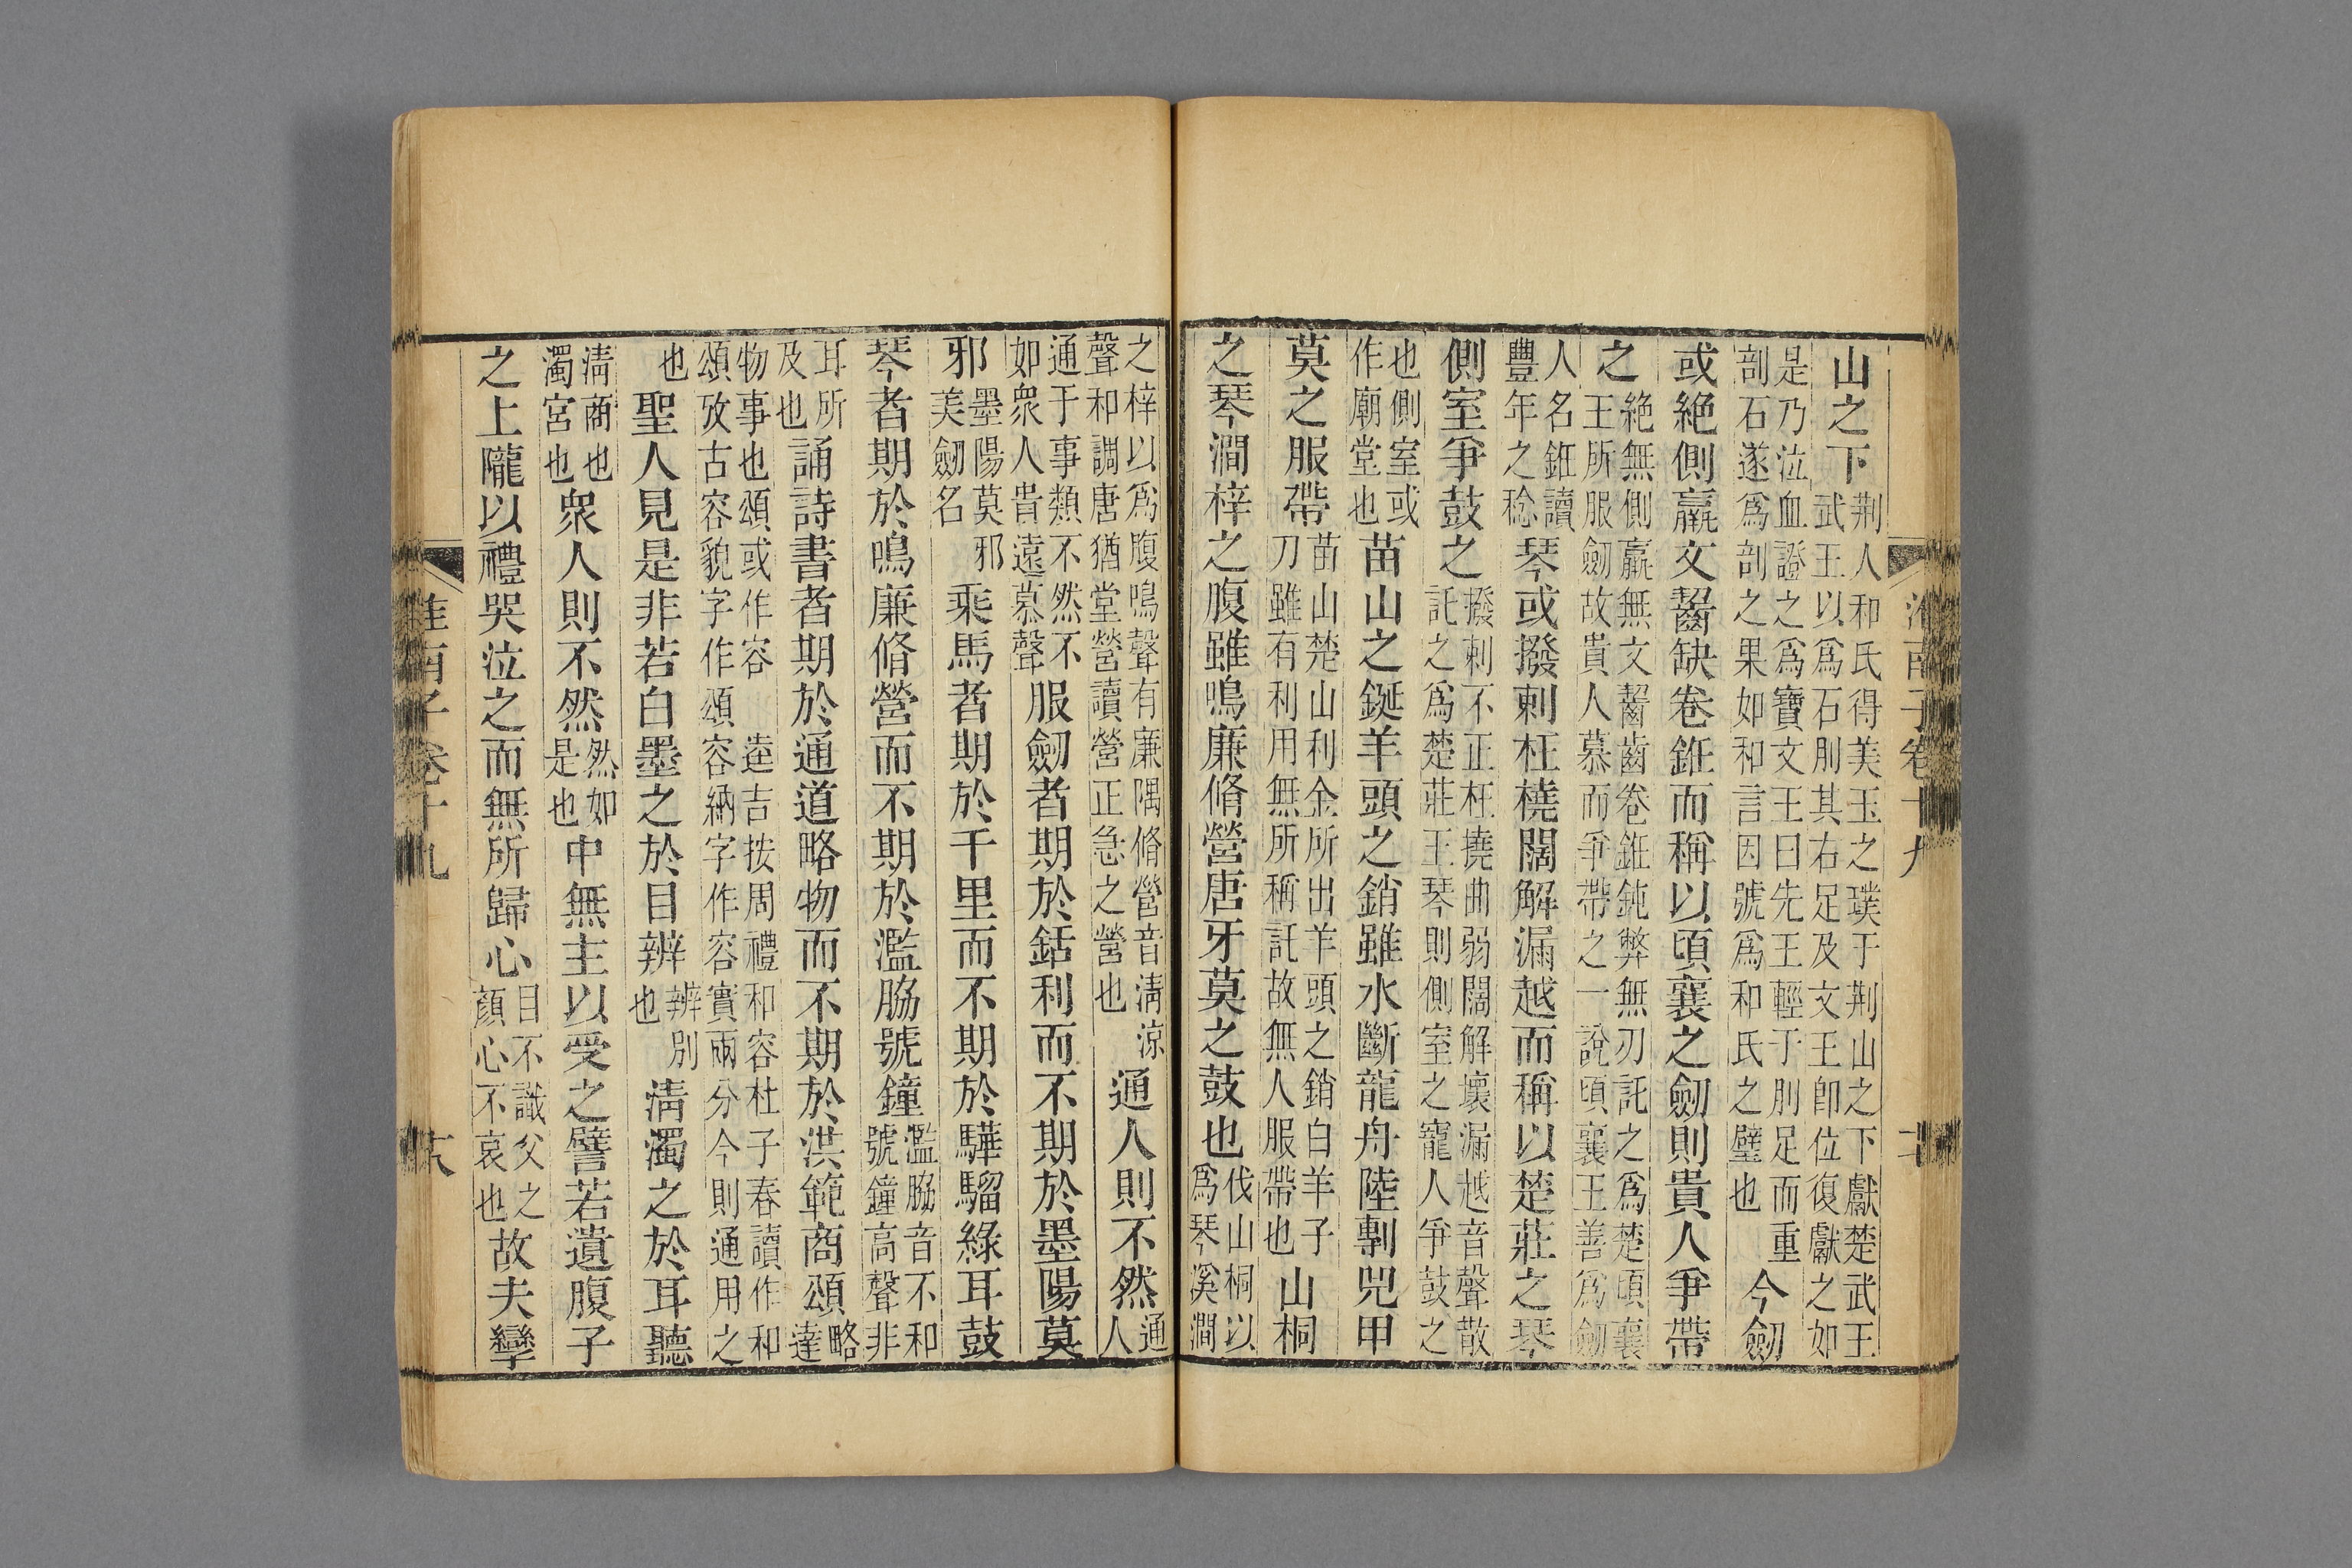 淮南子卷十九
山之下荆人和氏得美玉之璞于荆山之下獻楚武王武王以爲石刖其右足及文王卽位復獻之如
是乃泣血證之爲寶文王曰先王輕于刖足而重剖石遂爲剖之果如和言因號爲和氏之璧也今劒
或絶側羸文齧缺卷銋而稱以頃襄之劒則貴人爭帶
之絶無側羸無文齧齒卷銋鈍弊無刃託之爲楚頃襄王所服劒故貴人慕而爭帶之一說頃襄王善爲劒
人名銋讀豐年之稔琴或撥剌枉橈闊解漏越而稱以楚莊之琴
側室爭鼓之撥剌不正枉橈曲弱闊解壞漏越音聲散託之爲楚莊王琴則側室之寵人爭鼓之
也側室或作廟堂也苗山之鋋羊頭之銷雖水斷龍舟陸剸兕甲
莫之服帶苗山楚山利金所出羊頭之銷白羊子刀雖有利用無所稱託故無人服帶也山桐
之琴澗梓之腹雖鳴廉脩營唐牙莫之鼓也伐山桐以爲琴溪澗
之梓以爲腹鳴聲有廉隅脩營音清凉聲和調唐猶堂營讀營正急之營也通人則不然通人
通于事類不然然不如衆人貴遠慕聲服劒者期於銛利而不期於墨陽莫
邪墨陽莫邪美劒名乘馬者期於千里而不期於驊騮綠耳鼓
琴者期於鳴廉脩營而不期於濫脇號鐘濫脇音不和號鐘高聲非
耳所及也誦詩書者期於通道略物而不期於洪範商頌略達
物事也頌或作容 逵吉按周禮和容杜子春讀作和頌攷古容貌字作頌容納字作容實兩分今則通用之
也聖人見是非若白墨之於目辨辨別也清濁之於耳聽
清商也濁宮也衆人則不然然如是也中無主以受之譬若遺腹子
之上隴以禮哭泣之而無所歸心目不識父之顔心不哀也故夫孿
淮南子卷十九